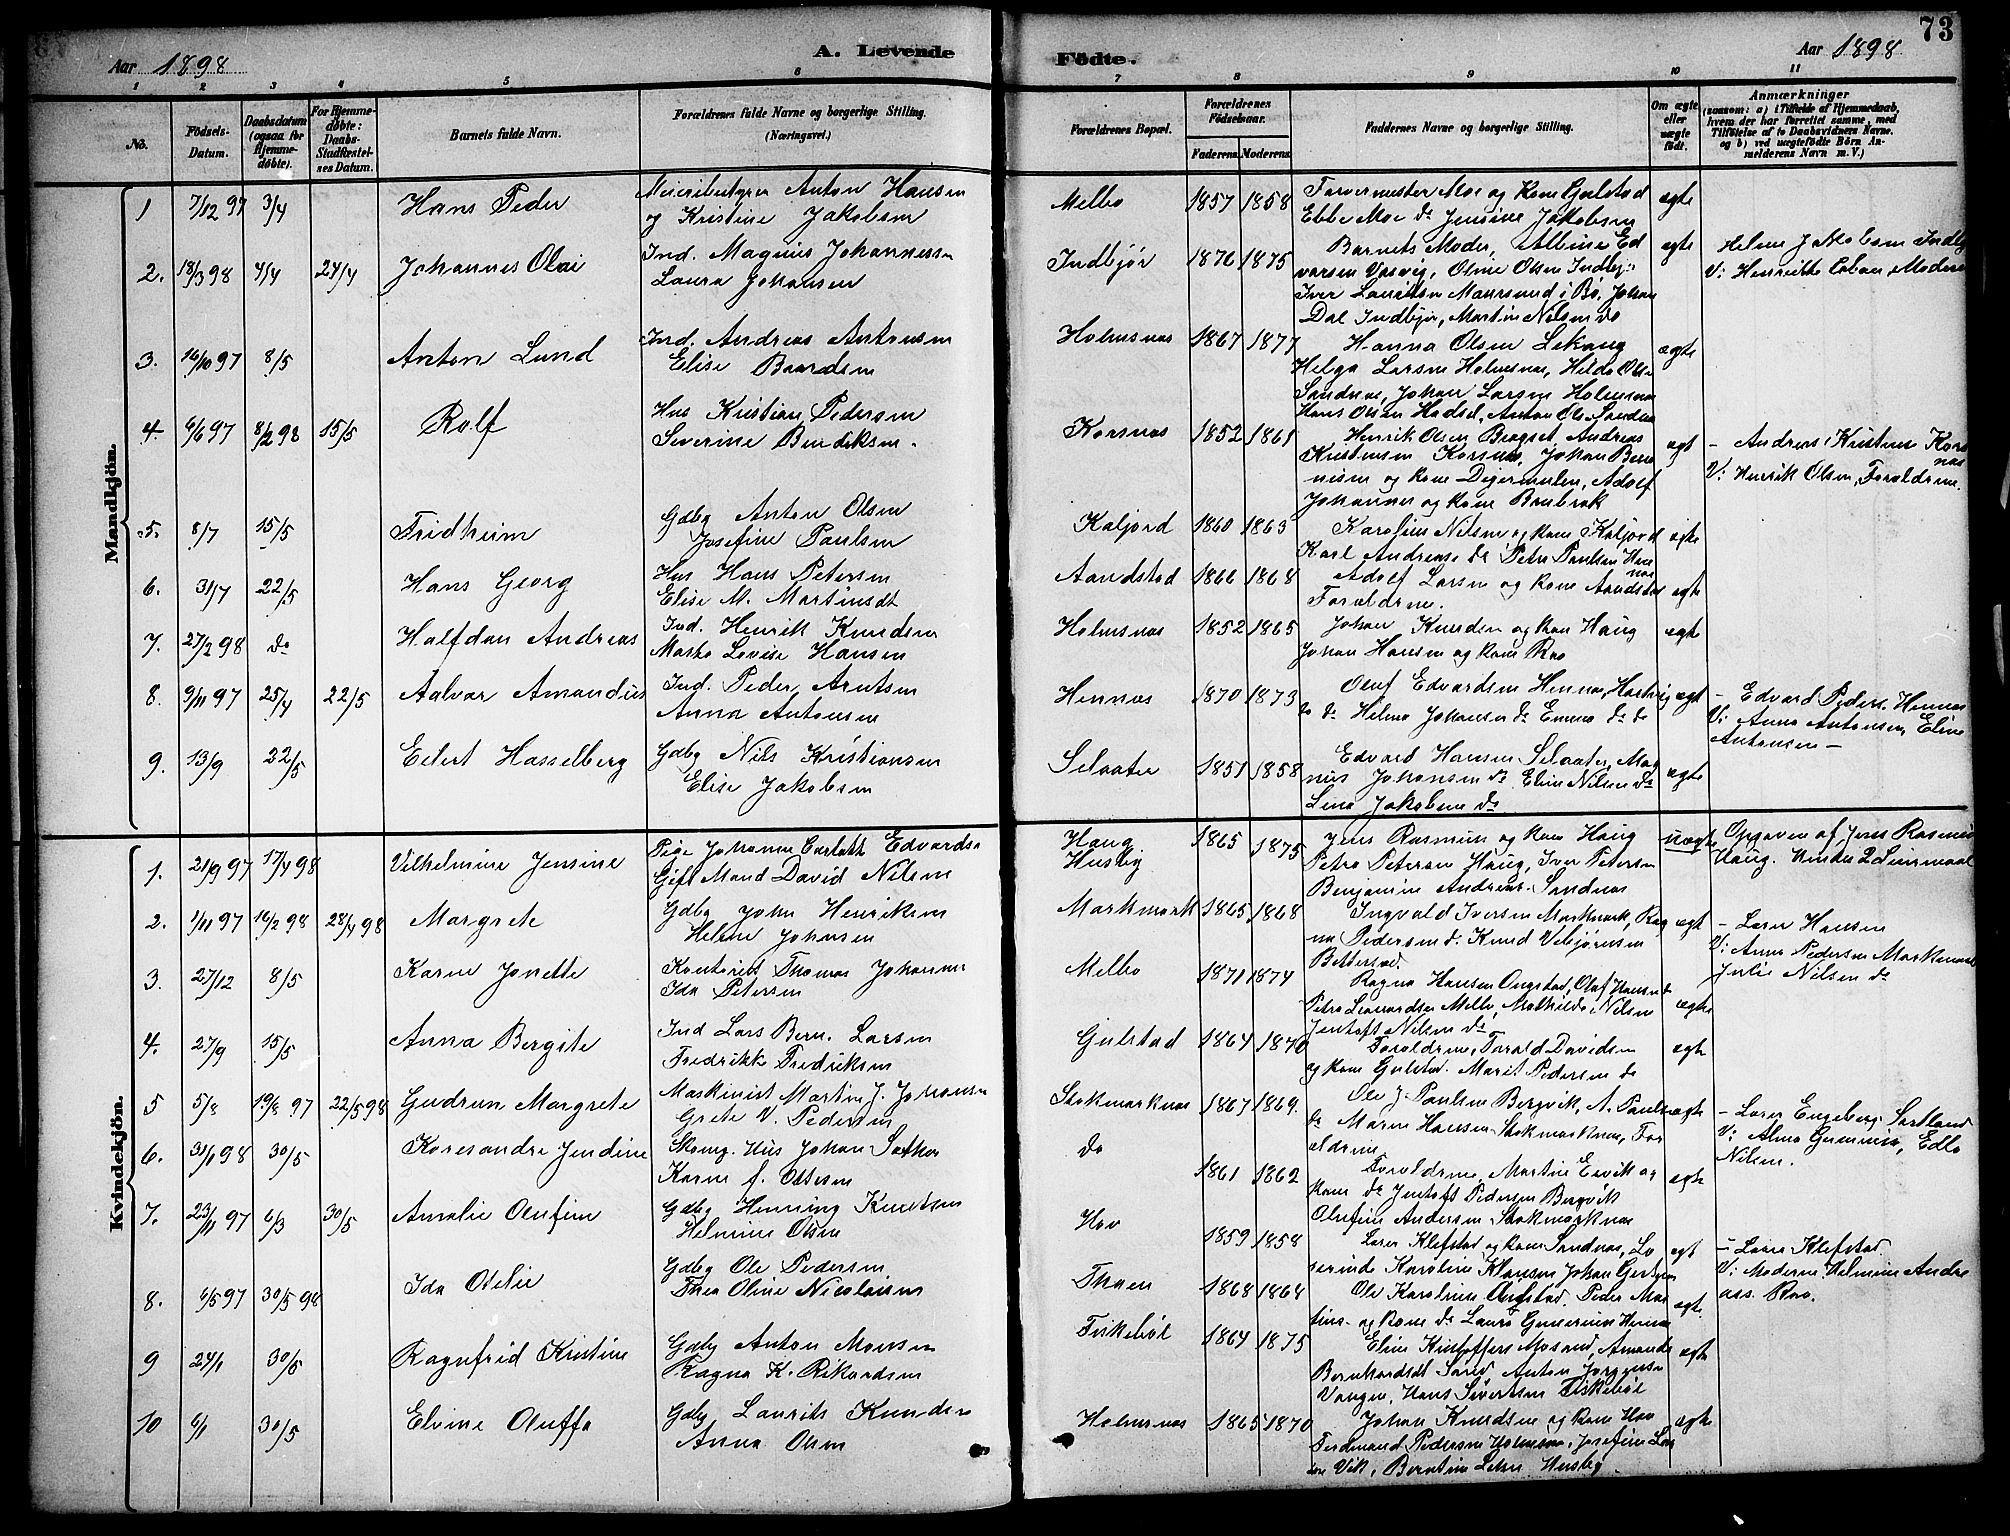 Aar 1898
A. Levende
1 2 3 4 5 6
No.
Födsels-Datum.
Daabsdatum (ogsaa for Hjemmedöbte).
For Hjemmedöbte: Daabs-Stadfæstelses Datum.
Barnets fulde Navn.
Forældrenes fulde Navne og borgerlige Stilling. (Næringsvei.)
Mandkjön.
1 7/12 97 3/4 Hans Peder Meieribestyrer Anton Hansen
og Kristine Jakobsen
2. 18/3 98 4/4 24/4 Johannes Olai Ind. Magnus Johannessen
Laura Johansen
3. 16/10 97 8/5 Anton Lund Ind. Andreas Antonsen
Elise Baardsen
4. 6/6 97 8/2 98 15/5 Rolf Hus Kristian Pedersen
Severine Bendiksen.
5. 8/7 15/5 Fridheim Gdbg Anton Olsen
Josefine Paulsen
6. 31/7 22/5 Hans Georg Hus Hans Petersen
Elise M. Martinsdt
7. 27/2 98 do Halfdan Andreas Ind. Henrik Knudsen
Lovise Hansen
8. 9/11 97 25/4 22/5 Aalvar Amandus Ind. Peder Arntsen
Anna Antonsen
9. 13/9 22/5 Eilert Hasselberg Gdbg Nils Kristiansen
Elise Jakobsen
Kvindekjön.
1. 21/9 97 17/4 98 Vilhelmine Jensine Pige Johanna Edvardsen
Gift Mand David Nilsen
2. 1/11 97 16/2 98 28/4 98 Margrete Gdbg John Henriksen
Helene Johnsen
3. 27/12 8/5 Karen Jonette Kontorist Thomas
Ida Petersen
4. 27/9 15/5 Anna Bergite Ind Lars Bern. Larsen
Fredrikke Fredriksen
5 5/8 19/8 97 22/5 98 Gudrun Margrete Maskinist Martin J. Johansen
Grete V. Pedersen
6. 31/1 98 30/5 Jendine Hus Johan
Karen f. Ottesen
7. 23/11 97 6/3 30/5 Amalie Olufine Gdbg Henning Knudsen
Helmine Olsen
8. 6/5 97 30/5 98 Ida Otelie Gdbg Ole Pedersen
Thea Oline Nicolaisen
9 24/1 30/5 Ragnfrid Kristine Gdbg Anton Monsen
Ragna K. Rikardsen
10 6/1 30/5 Elvine Oluffa Gdbg Laurits Knudsen
Anna Olsen
Födte.
Aar 1898
73
7 8 9 10 11
Forældrenes Bopæl.
Forældrenes Födselsaar.
Faderens. Moderens.
Faddernes Navne og borgerlige Stilling.
Om ægte eller uægte födt.
Anmærkninger
(saasom: a) i Tilfælde af Hjemmedaab, hvem der har forrettet samme, med Tilföielse af to Daabsvidners Navne. og b) ved uægtefödte Börn Anmelderens Navn m. V.)
Melbo 1857 1858 Farvermester Moe og Kone Gulstad ægte
Ebbe Moe do Jensine Jakobsen
Indbjör 1876 1875 Barnets Moder, Albine Ed ægte
varsen Vasvig, Oline Olsen Indbj:
Iver Lauritsen Maursund i Bö, Johan
Dal Indbjör, Martin Nilsen do
Jakobsen Indbj
V: Henriette Moderen
Holmsnæs 1867 1877 Hanna Olsen Lekang ægte
Helga Larsen Holmsnæs, Hilda Olsen
Sandnæs, Johan Larsen Holmsnæs
Hans Olsen Hadsel, Anton Ols. Sandnæs
Korsnæs 1852 1861 Henrik Olsen Andreas ægt
Kristensen Korsnæs, Johan
og kone Digermulen, Adolf
og kone
- Andreas Kristens Kors
næs
V: Henrik Olsen, Forældrene.
Kaljord 1860 1863 Karolius Nilsen og kone Kaljord ægte
Karl Andreas do Petra Paulsen Hen
næs
Aandstad 1866 1868 Adolf Larsen og kone Aandstad ægte
Forældrene.
Holmsnæs 1852 1865 Johan Knudsen og kone Haug ægte
Johan Hansen og kone
Hennæs 1870 1873 Oluf Edvardsen Hennæs, Hartvig ægt
do do Helma Johansen do Emma do do
- Edvard Peders. Hennæs
V: Anna Antonsen, Eline
Antonsen -
Selaater 1851 1858 Edvard Hansen Selaater, Mag ægte
nus Johansen do Eline Nilsen do
Lina Jakobsen do
Haug 1865 1875 Jens Rasmus og kone Haug uægte
Husby Petra Petersen Haug, Iver Petersen
Benjamin Andreas. Sandnæs
Opgaven af Jens Rasmus
Haug. Hendes 2 Leiermaal
Markmark 1865 1868 Ingvald Iversen Markmark, Rag ægt
na Pedersen do Knud Vebjörnsen
- Lærer Hansen
V: Anna Pedersen Markmark
Julie Nilsen do
Melbo 1871 1874 Ragna Hansen Olaf Hansen do ægte
Petra Leonardsen Melbo, Mathilde Nilsen
Jentoft Nilsen do
Gulstad 1864 1870 Forældrene, Tarald Davidsen ægte
og kone Gulstad. Marit Pedersen do
Stokmarknæs 1867 1869. Ole J. Paulsen Bergvik, A. Pauls ægte
do Maren Hansen Stokmarknæs, For
ældrene
- Lærer Engeberg Sortland
V: Edle
Nilsen.
do 1861 1862 Forældrene, Martin og ægte
kone do Jentoft Pedersen Bergvik
Olufine Andersen Stokmarknæs
Hov 1859 1858 Lærer Klefstad og kone Sandnæs, ægt
Karoline Klausen Johan
- Lærer Klefstad
V: Moderen Helmine Andre
ass.
Thoen 1868 1864 Ole Karolius Peder Mar ægte
tins. og kone do Laura Hennæs
Fiskeböl 1864 1875 Eline Amanda ægte
Bernhardsdt Anton Jörgensen
Hans Sivertsen Fiskeböl
Holmsnæs 1865 1870 Johan Knudsen og kone Hov ægte
Ferdinand Pedersen Holmsnæs, Josefine Lar
sen Vik, Berntine Husby